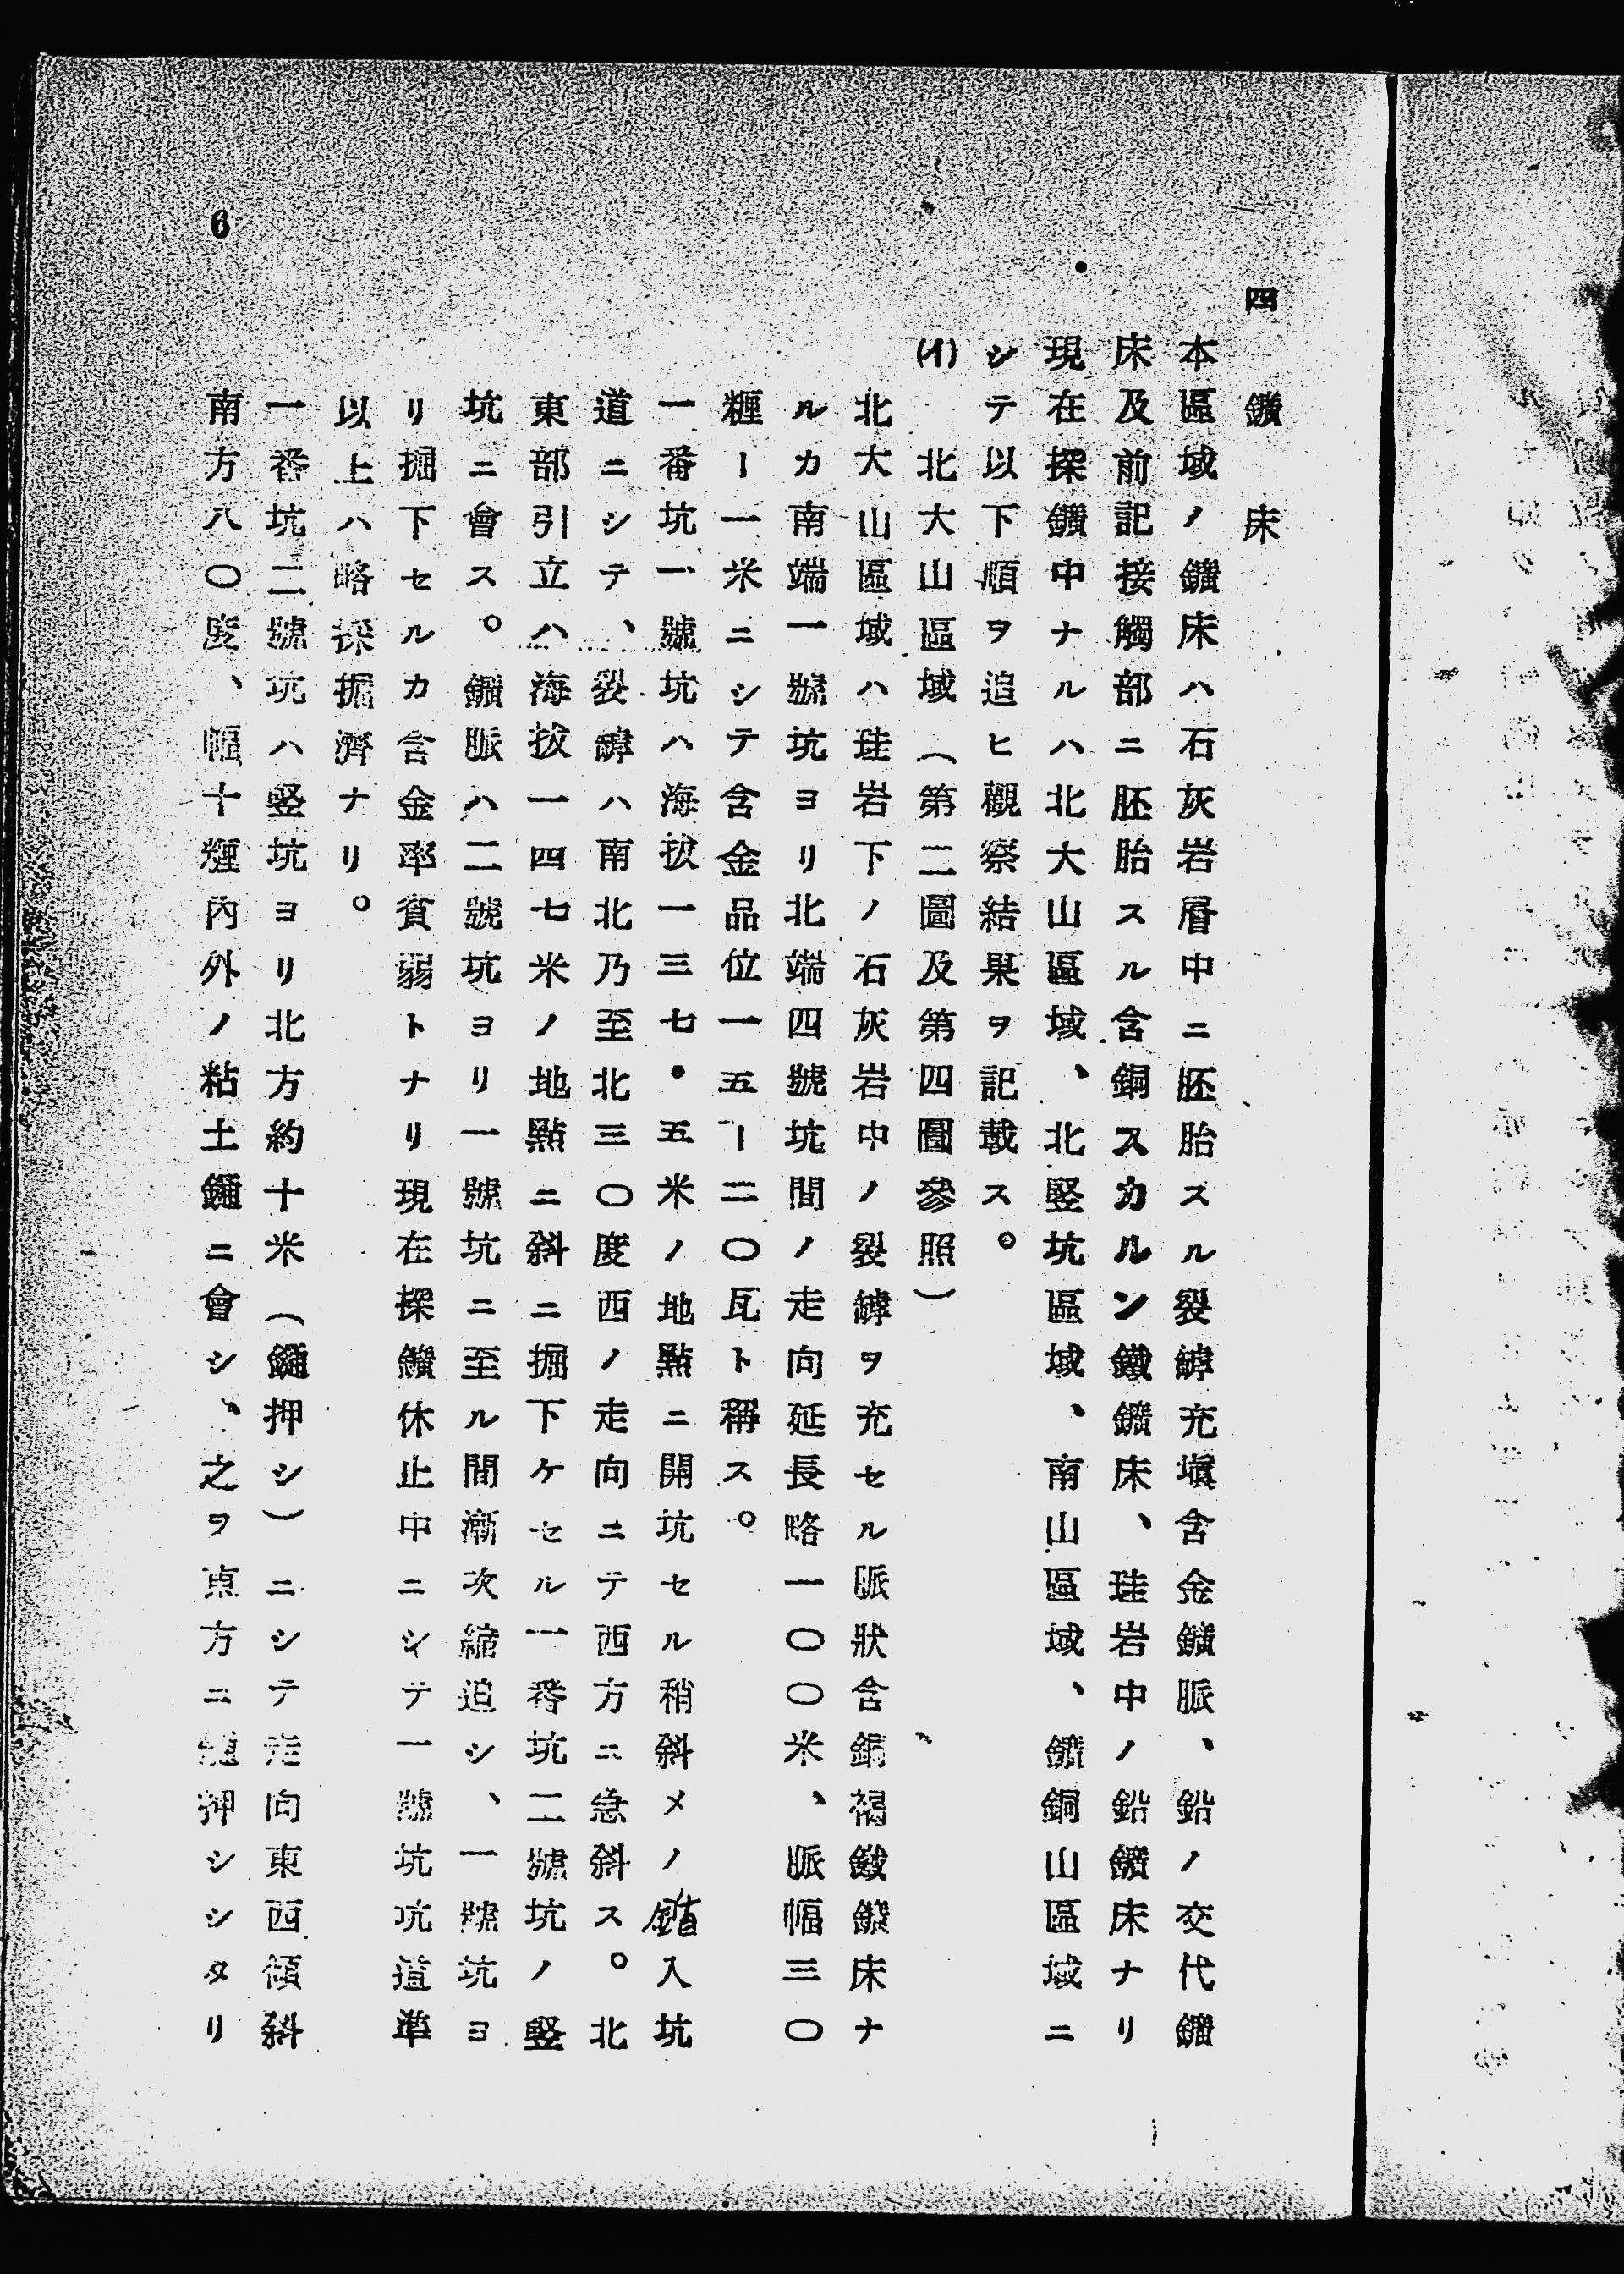 四　鑛床
本區域ノ鑛床ハ石灰岩層中ニ胚胎スル裂罅充塡含金鑛脈、鉛ノ交代鑛
床及前記接觸部ニ胚胎スル含銅スカルン鐵鑛床、珪岩中ノ鉛鑛床ナリ
現在探鑛中ナルハ北大山區域、北竪坑區域、南山區域、鑛銅山區域ニ
シテ以下順ヲ追ヒ觀察結果ヲ記載ス。
(イ)　北大山區域（第二圖及第四圖參照）
北大山區域ハ珪岩下ノ石灰岩中ノ裂罅ヲ充セル脈狀含銅褐鐵鑛床ナ
ルカ南端一號坑ヨリ北端四號坑間ノ走向延長略一〇〇米、脈幅三〇
糎ー一米ニシテ含金品位一五ー二〇瓦ト稱ス。
一番坑一號坑ハ海拔一三七。五米ノ地點ニ開坑セル稍斜メノ䤹入坑
道ニシテ、裂罅ハ南北乃至北三〇度西ノ走向ニテ西方ニ急斜ス。北
東部引立ハ海拔一四七米ノ地點ニ斜ニ掘下ケセル一番坑二號坑ノ竪
坑ニ會ス。鑛脈ハ二號坑ヨリ一號坑ニ至ル間漸次縮迫シ、一號坑ヨ
リ掘下セルカ含金率貧弱トナリ現在探鑛休止中ニシテ一號坑坑道準
以上ハ略採掘濟ナリ。
一番坑二號坑ハ竪坑ヨリ北方約十米（鑓押シ）ニシテ走向東西傾斜
南方八〇度、幅十糎內外ノ粘土鑓ニ會シ、之ヲ東方ニ鑓押シシタリ
6